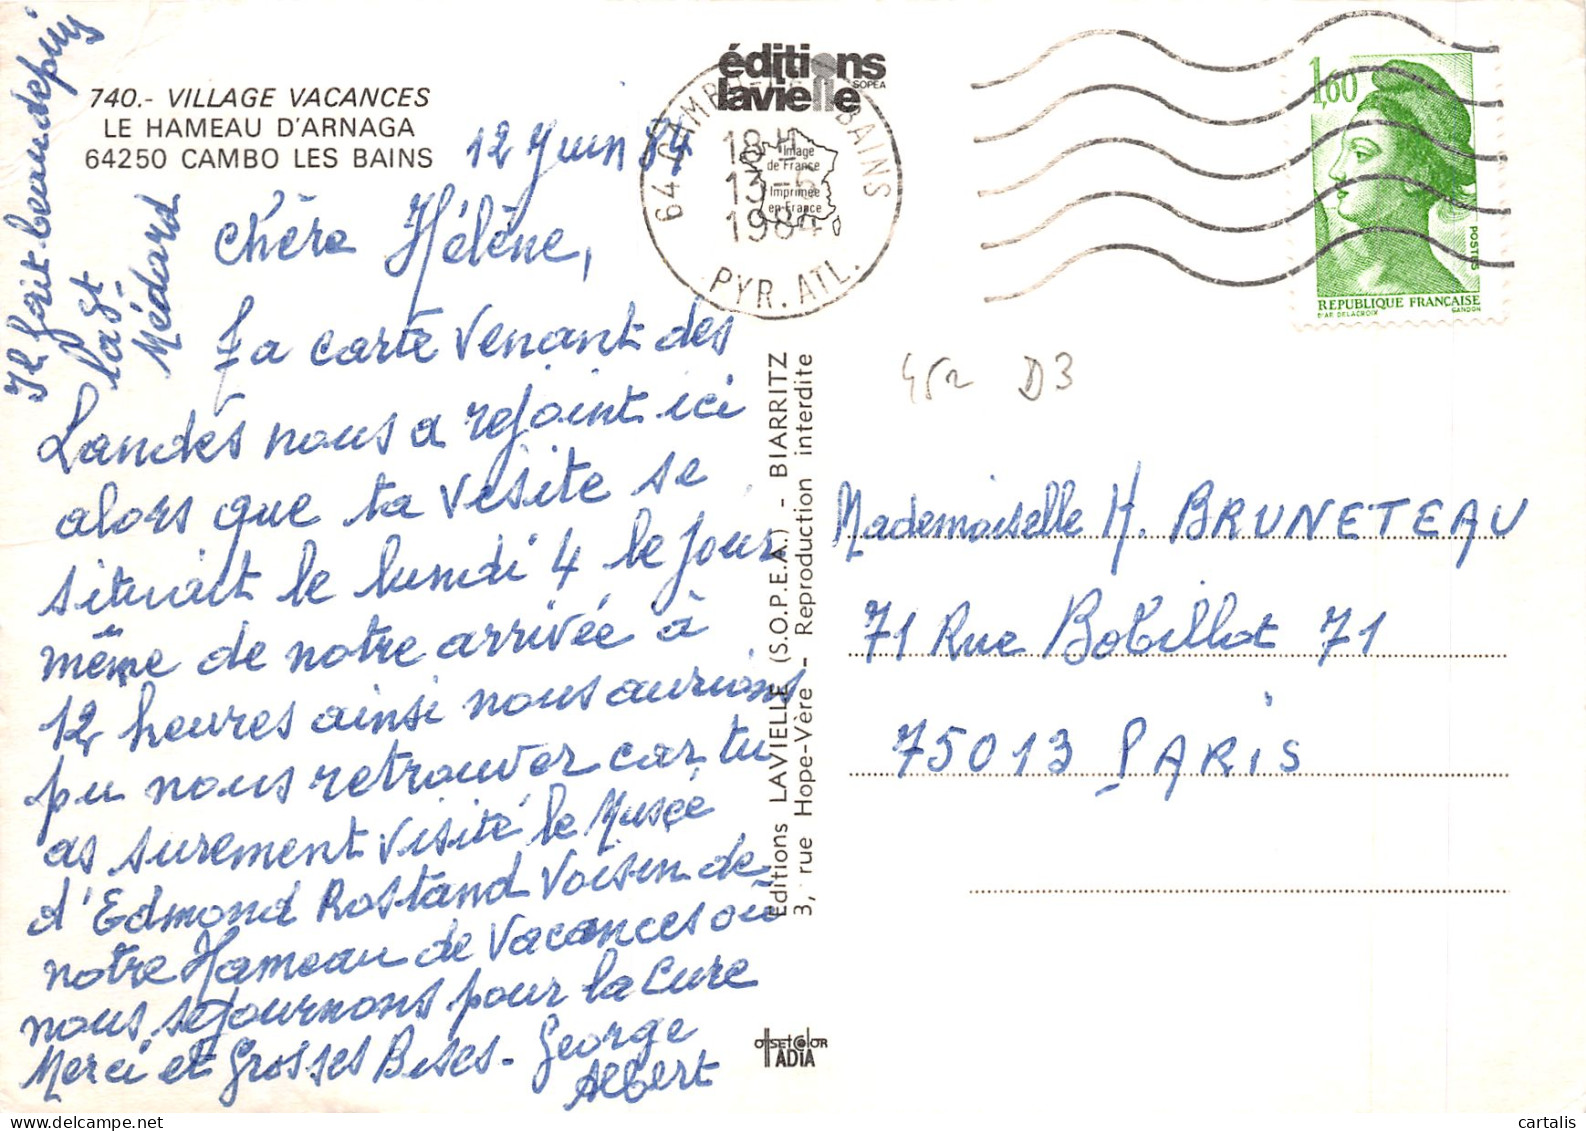 740.- VILLAGE VACANCES
LE HAMEAU D'ARNAGA
64250 CAMBO LES BAINS
Il fait beau depuis
la St-
Médard
12 Juin 84
Chère Hélène,
Ta carte venant des
Landes nous a rejoint ici
alors que ta visite se
situait le lundi 4 le jour
même de notre arrivée à
12 heures ainsi nous aurions
pu nous retrouver car tu
as surement visité le Musée
d'Edmond Rostand Voisin de
notre Hameau de Vacances où
nous séjournons pour la Cure
Merci et Grosses Bises - George
Albert
éditions
lavielle
SOPEA
Image
de France
Imprimée
en France
64 CAMBO LES BAINS
18 H
13-6
1984
PYR. ATL.
Editions LAVIELLE (S.O.P.E.A.) - BIARRITZ
3, rue Hope-Vère - Reproduction interdite
OFFSETCOLOR
ADIA
1,60
POSTES
REPUBLIQUE FRANÇAISE
D'AP. DELACROIX GANDON
D3
Mademoiselle H. BRUNETEAU
71 Rue Bobillot 71
75013 PARIS
cartalis